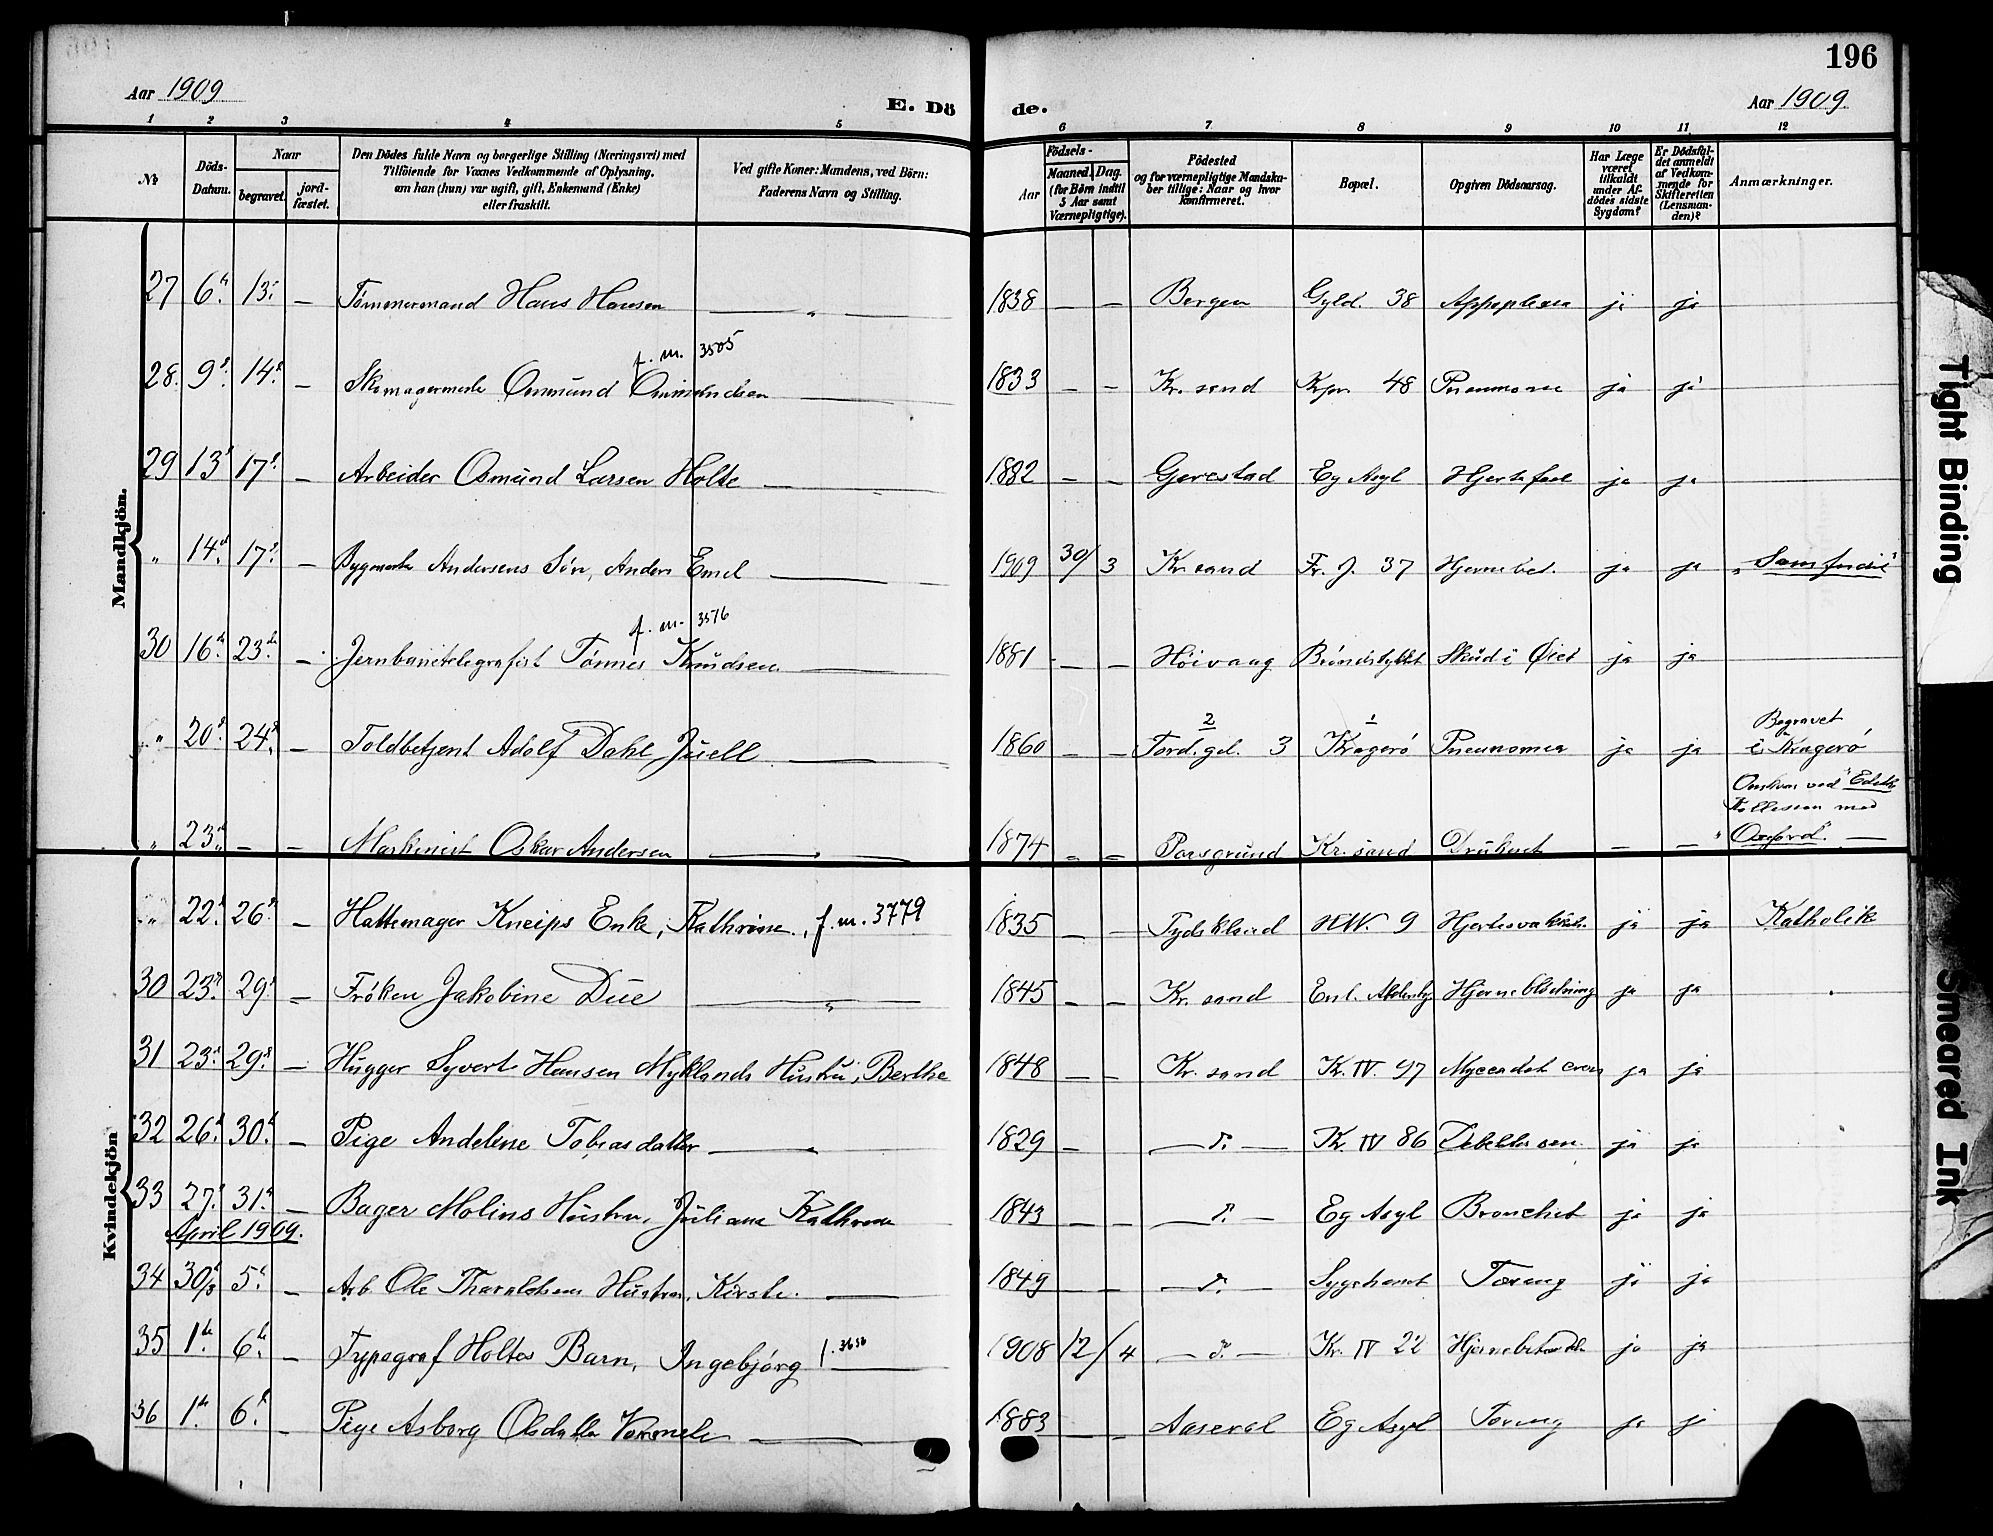 196
Aar 1909
E. Dö de.
Aar 1909.
1 2 3 4 5 6 7 8 9 10 11 12
No
Döds-Datum.
Naar
begravet.
jord-fæstet.
Den Dödes fulde Navn og borgerlige Stilling (Næringsvei) med
Tilföiende for Voxnes Vedkommende af Oplysning,
om han (hun) var ugift, gift, Enkemand (Enke)
eller fraskilt.
Ved gifte Koner: Mandens, ved Börn:
Faderens Navn og Stilling.
Födsels-
Aar
Maaned. Dag.
(for Börn indtil
5 Aar samt
Værnepligtige).
Födested
og for værnepligtige Mandska-
ber tillige: Naar og hvor
konfirmeret.
Bopæl.
Opgiven Dödsaarsag.
Har Læge
været
tilkaldt
under Af-
dödes sidste
Sygdom?
Er Dödsfal-
det anmeldt
af Vedkom-
mende for
Skifteretten
(Lensman-
den)?
Anmærkninger.
Mandkjön.
27 6. 13. – Tømmermand Hans Hansen 1838 – – Bergen Gyld. 38 ja ja
f. m. 3505
28. 9. 14. – Osmund 1833 – – Kr. sand 48 ja ja
29 13 17. – Arbeider Osmund Larsen Holte 1882 – – Gjerestad Eg Asyl Hjertefeil ja ja
" 14. 17. – Andersens Søn, Anders Emil 1909 30/3 Kr. sand Fr. J. 37 Hjernebet. ja ja
f. m. 3576
30 16. 23. – Jernbanetelegrafist Tønnes Knudsen 1881 – – Høivaag Skud i Øiet ja ja
" 20. 24. – Toldbetjent Adolf Dahl Juell 1860 – – 2 Tord. gd. 3 1 Kragerø Pneunomia ja ja Begravet
i Kragerø
" 23. – – Maskinist Oskar Andersen 1874 – – Porsgrund Kr. sand Druknet – – Omkom ved
Kollission med
"Oxford". –
Kvindekjön
" 22. 26. – Hattemager Kneips Enke, Kathrine., f. m. 3779 1835 – – Tydskland H.W. 9 ja ja Katholik
30 23. 29. – Frøken Jakobine Due 1845 – – Kr. sand Hjerneblødning ja ja
31 23. 29. – Hugger Syvert Hansen Myklands Hustru, Berthe 1848 – – Kr. sand Kr. IV. 97 ja ja
32 26. 30. – Pige Andeline Tobiasdatter 1829 – – d. – Kr. IV 86 ja ja
33 27. 31. – Bager Molins Hustru, Juliane Kathrine 1843 – – – d. – Eg Asyl Bronchit ja ja
April 1909.
34 30/3 5. – Arb Ole Hustru, Kirste. 1849 – – – d. – Sygehuset Tæring ja ja
35 1. 6. – Typograf Holtes Barn, Ingebjørg f. 1908 12/4 – d. – Kr. IV 22 ja ja
36 1. 6. – Pige Asborg Olsdatter 1883 – Aaseral Eg Asyl Tæring ja ja
Tight Binding
Smeared Ink